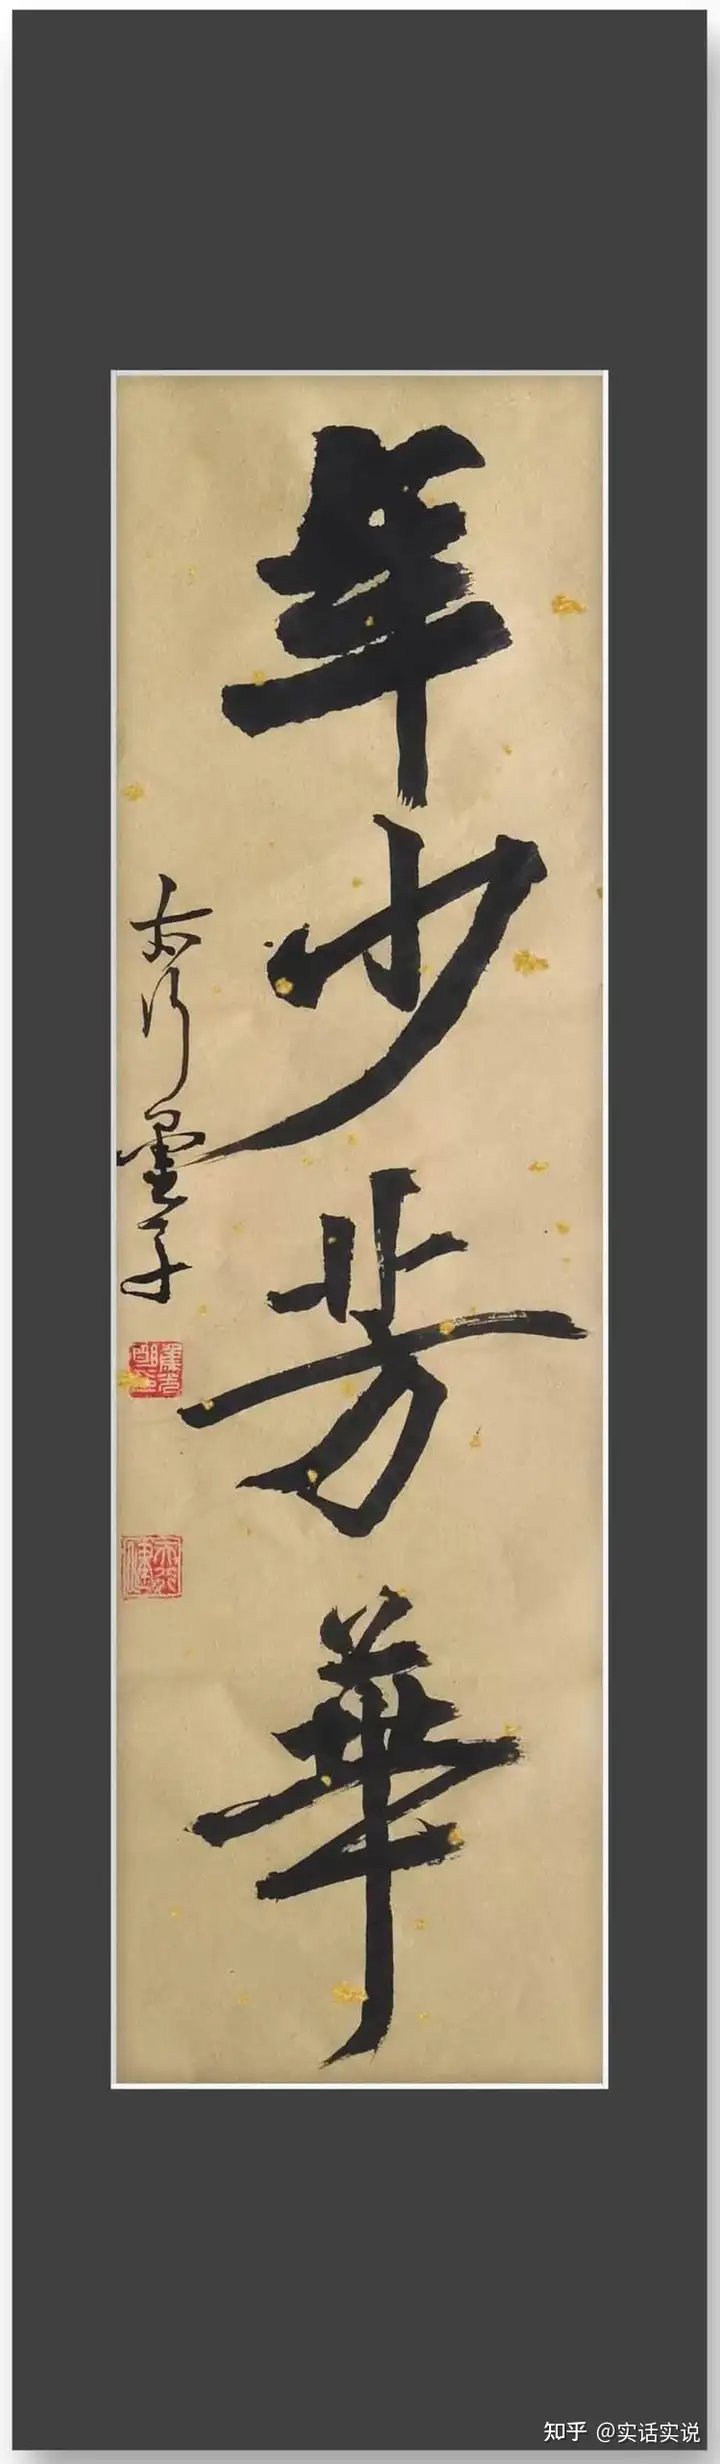 年少芳華
墨子
知乎 @实话实说